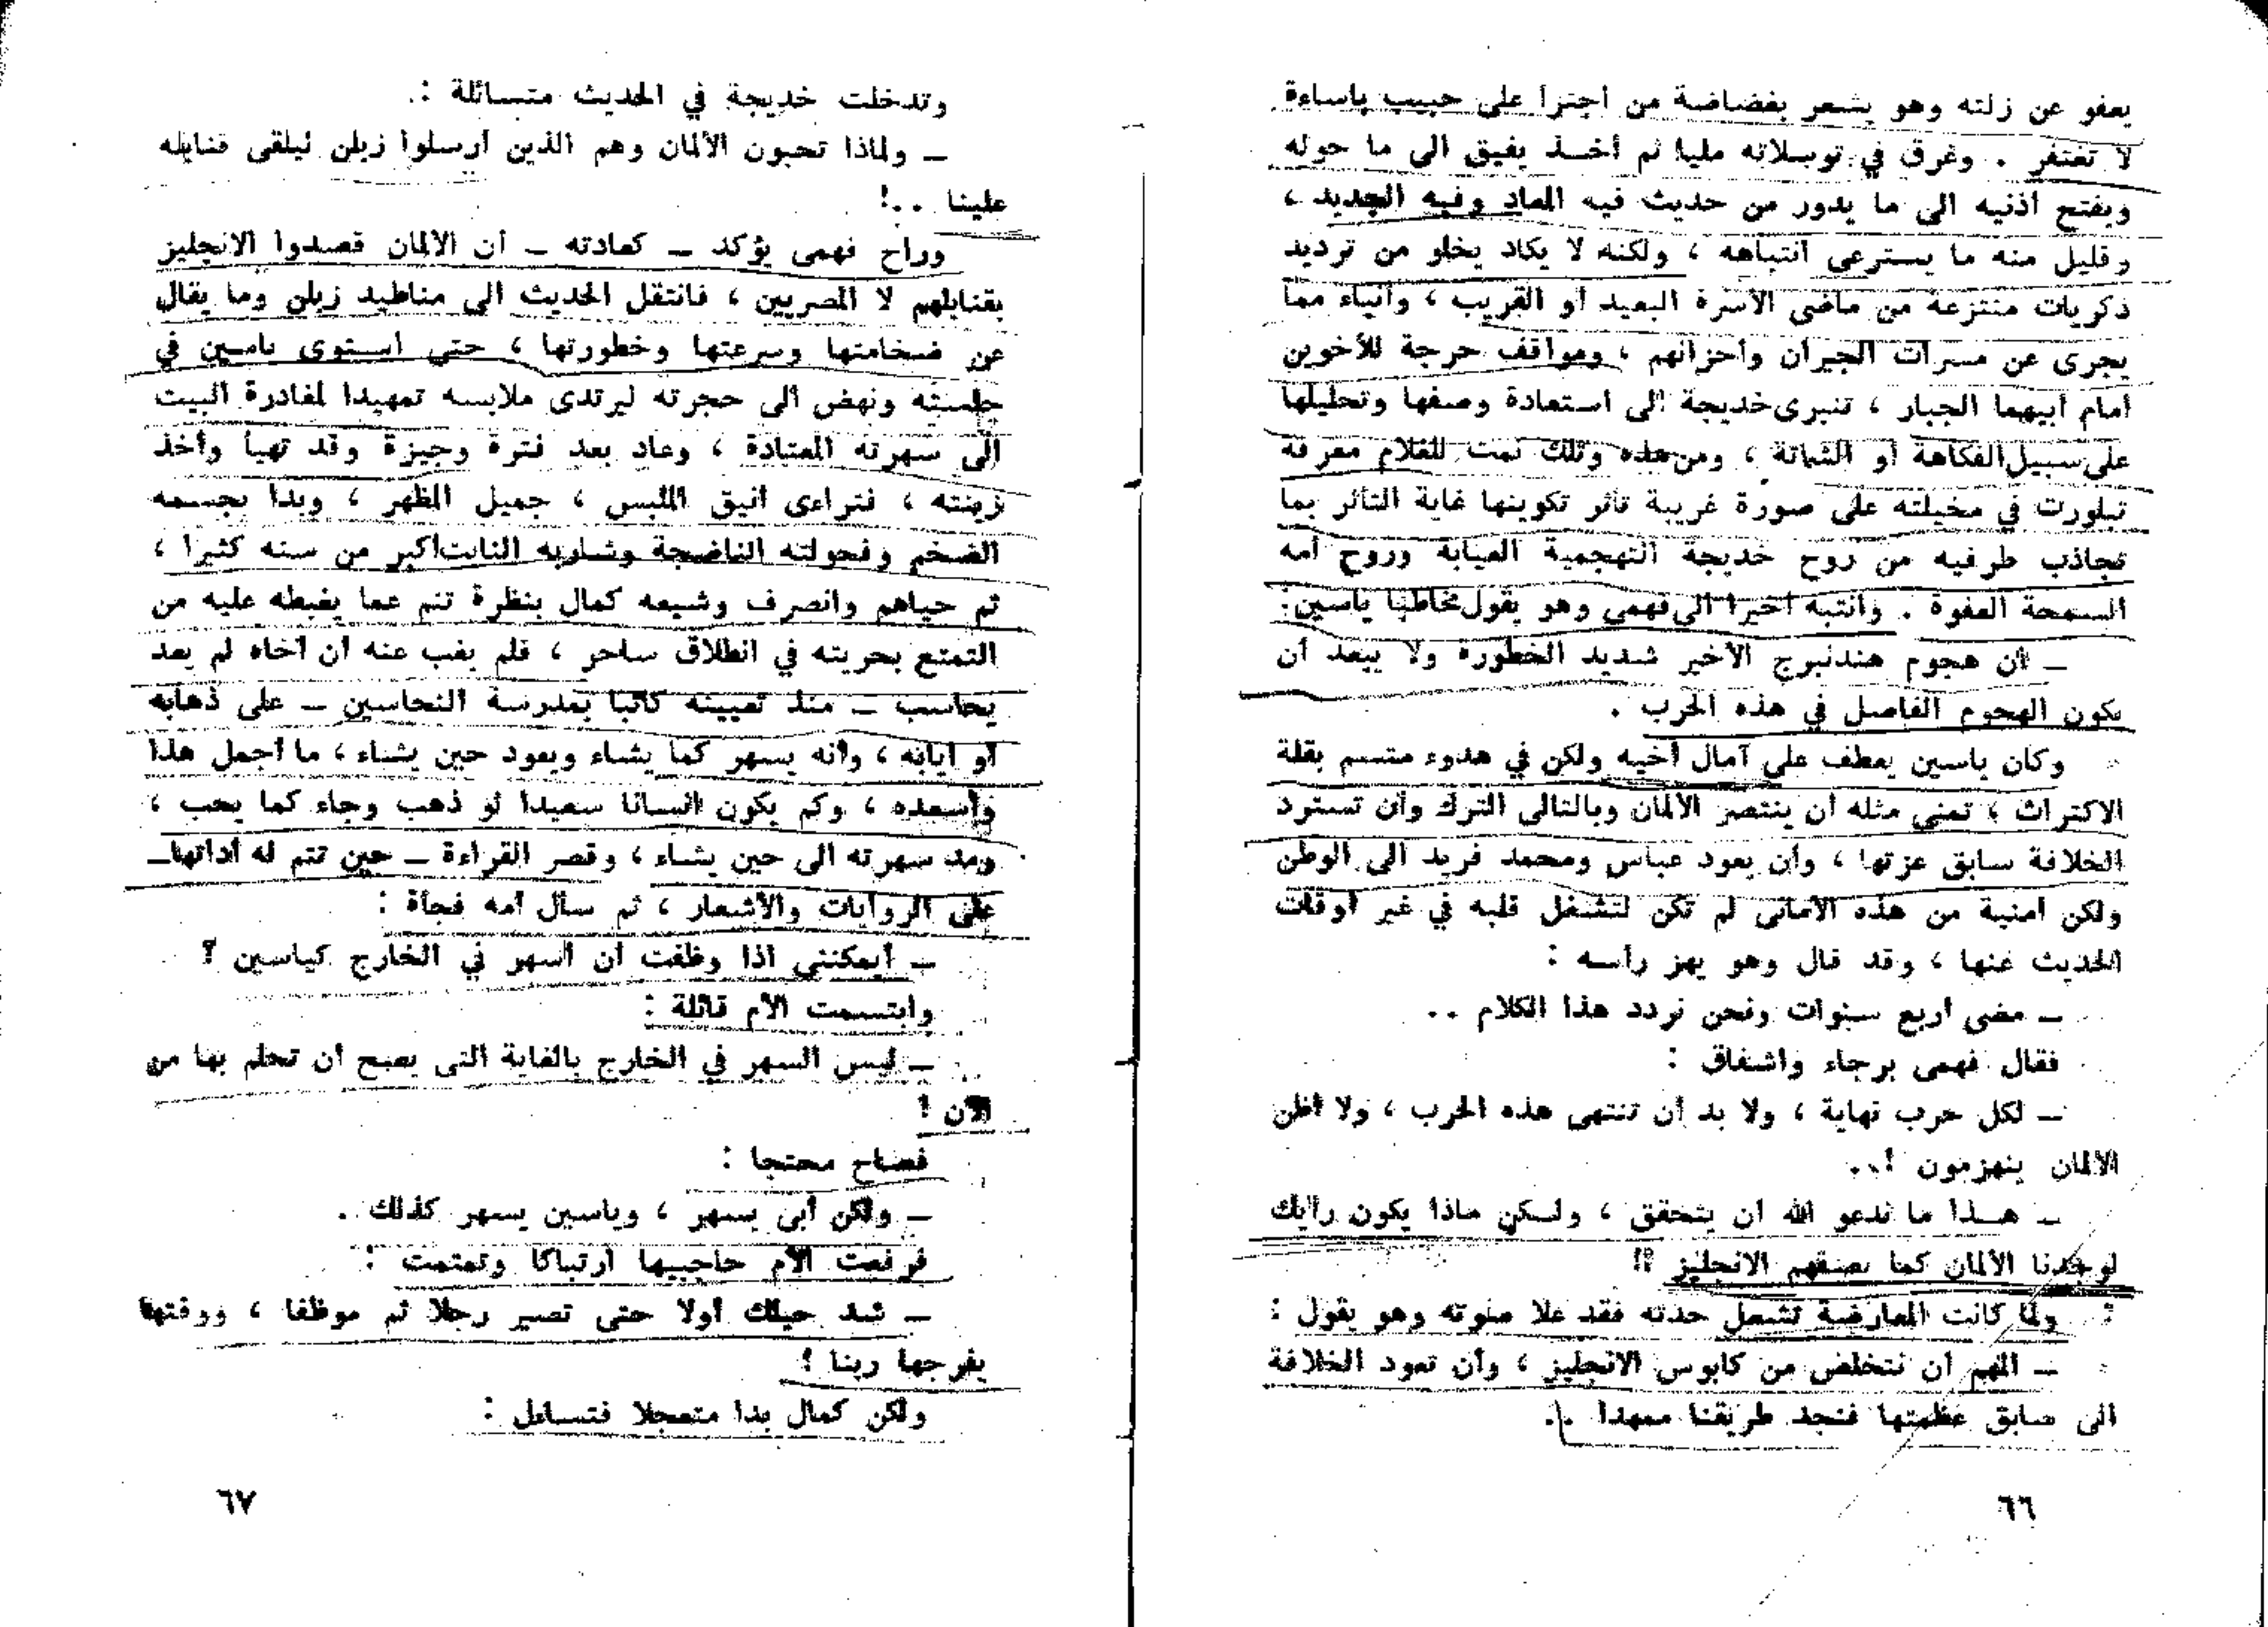 يعفو عن زلته وهو يشعر بغضاضة من اجترأ على حبيب باساءة
لا تغتفر . وغرق في توسلاته مليا ثم أخذ يفيق الى ما حوله
ويفتح أذنيه الى ما يدور من حديث فيه المعاد وفيه الجديد ،
وقليل منه ما يسترعى انتباهه ، ولكنه لا يكاد يخلو من ترديد
ذكريات منتزعة من ماضى الأسرة البعيد أو القريب ، وأنباء مما
يجرى عن مسرات الجيران وأحزانهم ، ومواقف حرجة للأخوين
أمام أبيهما الجبار ، تنبرى خديجة الى استعادة وصفها وتحليلها
على سبيل الفكاهة أو الشماتة ، ومن هذه وتلك نمت للغلام معرفة
تبلورت في مخيلته على صورة غريبة تأثر تكوينها غاية التأثر بما
تجاذب طرفيه من روح خديجة التهجمية العيابة وروح أمه
السمحة العفوة . وانتبه أخيرا الى فهمى وهو يقول مخاطبا ياسين :
ــ ان هجوم هندنبرج الأخير شديد الخطورة ولا يبعد أن
يكون الهجوم الفاصل في هذه الحرب .
وكان ياسين يعطف على آمال أخيه ولكن في هدوء متسم بقلة
الاكتراث ، تمنى مثله أن ينتصر الألمان وبالتالى الترك وأن تسترد
الخلافة سابق عزتها ، وأن يعود عباس ومحمد فريد الى الوطن
ولكن أمنية من هذه الأمانى لم تكن لتشغل قلبه في غير أوقات
الحديث عنها ، وقد قال وهو يهز رأسه :
ــ مضى أربع سنوات ونحن نردد هذا الكلام ..
فقال فهمى برجاء واشفاق :
ــ لكل حرب نهاية ، ولا بد أن تنتهى هذه الحرب ، ولا أظن
الألمان ينهزمون !..
ــ هذا ما ندعو الله أن يتحقق ، ولكن ماذا يكون رأيك
لو وجدنا الألمان كما يصفهم الانجليز ؟!
ولما كانت المعارضة تشعل حدته فقد علا صوته وهو يقول :
ــ المهم أن نتخلص من كابوس الانجليز ، وأن تعود الخلافة
الى سابق عظمتها فنجد طريقنا ممهدا ..
٦٦
وتدخلت خديجة في الحديث متسائلة :
ــ ولماذا تحبون الألمان وهم الذين أرسلوا زبلن ليلقى قنابله
علينا ..!
وراح فهمى يؤكد ــ كعادته ــ أن الألمان قصدوا الانجليز
بقنابلهم لا المصريين ، فانتقل الحديث الى مناطيد زبلن وما يقال
عن ضخامتها وسرعتها وخطورتها ، حتى استوى ياسين في
جلسته ونهض الى حجرته ليرتدى ملابسه تمهيدا لمغادرة البيت
الى سهرته المعتادة ، وعاد بعد فترة وجيزة وقد تهيأ وأخذ
زينته ، فتراءى أنيق الملبس ، جميل المظهر ، وبدا بجسمه
الضخم وفحولته الناضجة وشاربه النابت أكبر من سنه كثيرا ،
ثم حياهم وانصرف وشيعه كمال بنظرة تنم عما يغبطه عليه من
التمتع بحريته في انطلاق ساحر ، فلم يغب عنه أن أخاه لم يعد
يحاسب ــ منذ تعيينه كاتبا بمدرسة النحاسين ــ على ذهابه
أو ايابه ، وأنه يسهر كما يشاء ويعود حين يشاء ، ما أجمل هذا
وأسعده ، وكم يكون انسانا سعيدا لو ذهب وجاء كما يحب ،
ومد سهرته الى حين يشاء ، وقصر القراءة ــ حين تتم له أداتها ــ
على الروايات والأشعار ، ثم سأل أمه فجأة :
ــ أيمكننى اذا وظفت أن أسهر في الخارج كياسين ؟
وابتسمت الأم قائلة :
ــ ليس السهر في الخارج بالغاية التى يصح أن تحلم بها من
الآن !
فصاح محتجا :
ــ ولكن أبى يسهر ، وياسين يسهر كذلك .
فرفعت الأم حاجبيها ارتباكا وتمتمت :
ــ شد حيلك أولا حتى تصير رجلا ثم موظفا ، ووقتها
يفرجها ربنا !
ولكن كمال بدا متعجلا فتساءل :
٦٧